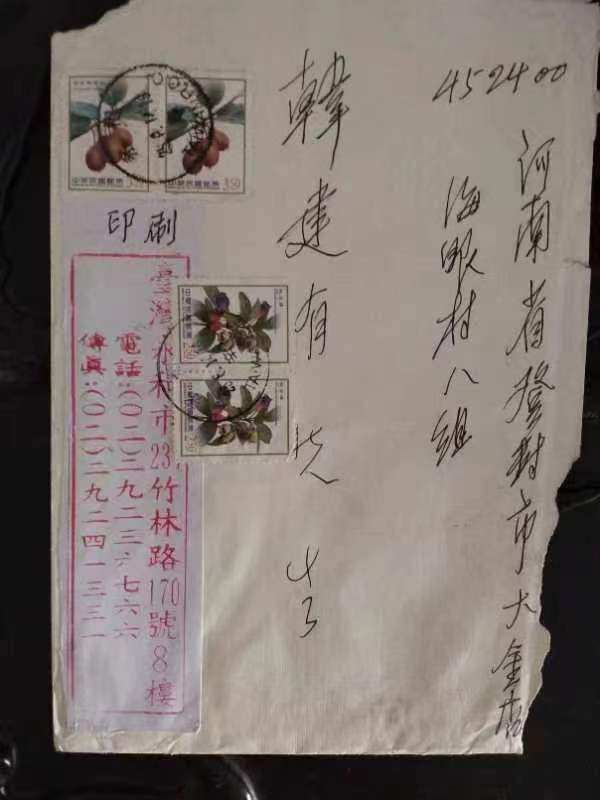 452400
河南省登封市大金店
海眼村八組
韓建有先生
中華民國郵票
350
350
250
250
印刷
臺灣永和市23竹林路170號8樓
電話:(〇二)二九二三六七六六
傳真:(〇二)二九二四一三三一